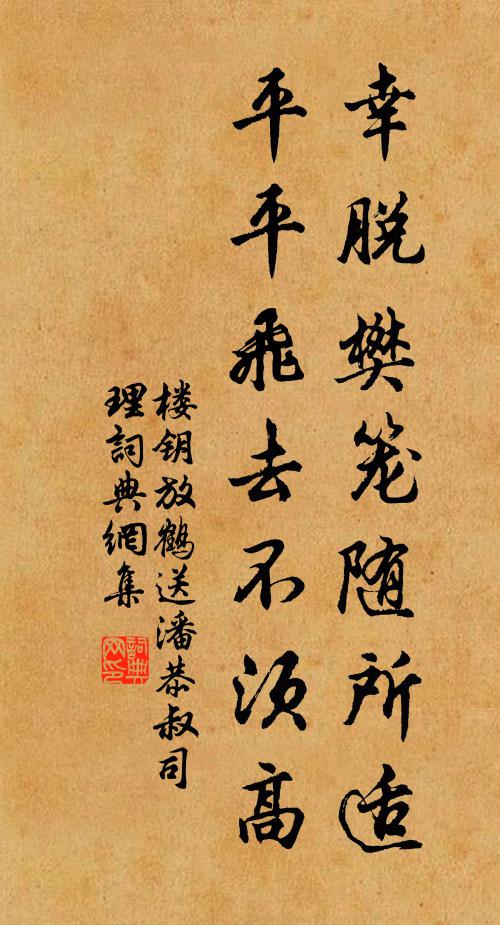 幸脱樊笼随所适
平平飛去不须高
楼钥放鹤送潘恭叔司
理詞典網集
詞典
网印